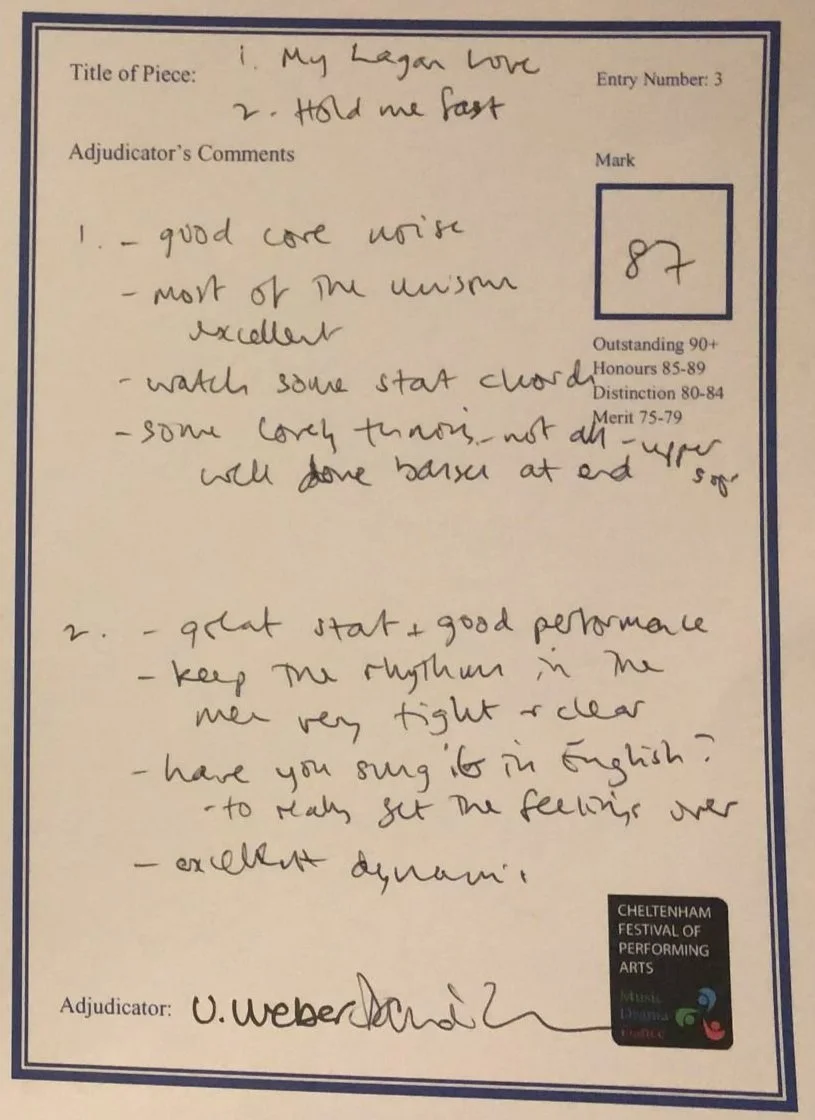 Title of Piece: 1. My Lagan Love
2. Hold me fast
Entry Number: 3
Adjudicator's Comments
Mark
87
Outstanding 90+
Honours 85-89
Distinction 80-84
Merit 75-79
1. - good core noise
- most of the unison
excellent
- watch some stat chords
- some lovely - not all - upper
sops
well done at end
2. - great stat + good performance
- keep the rhythm in the
men very tight + clear
- have you sung it in English?
- to really get the feelings over
- excellent dynamic
CHELTENHAM
FESTIVAL OF
PERFORMING
ARTS
Music
Drama
Dance
Adjudicator: U. Weber